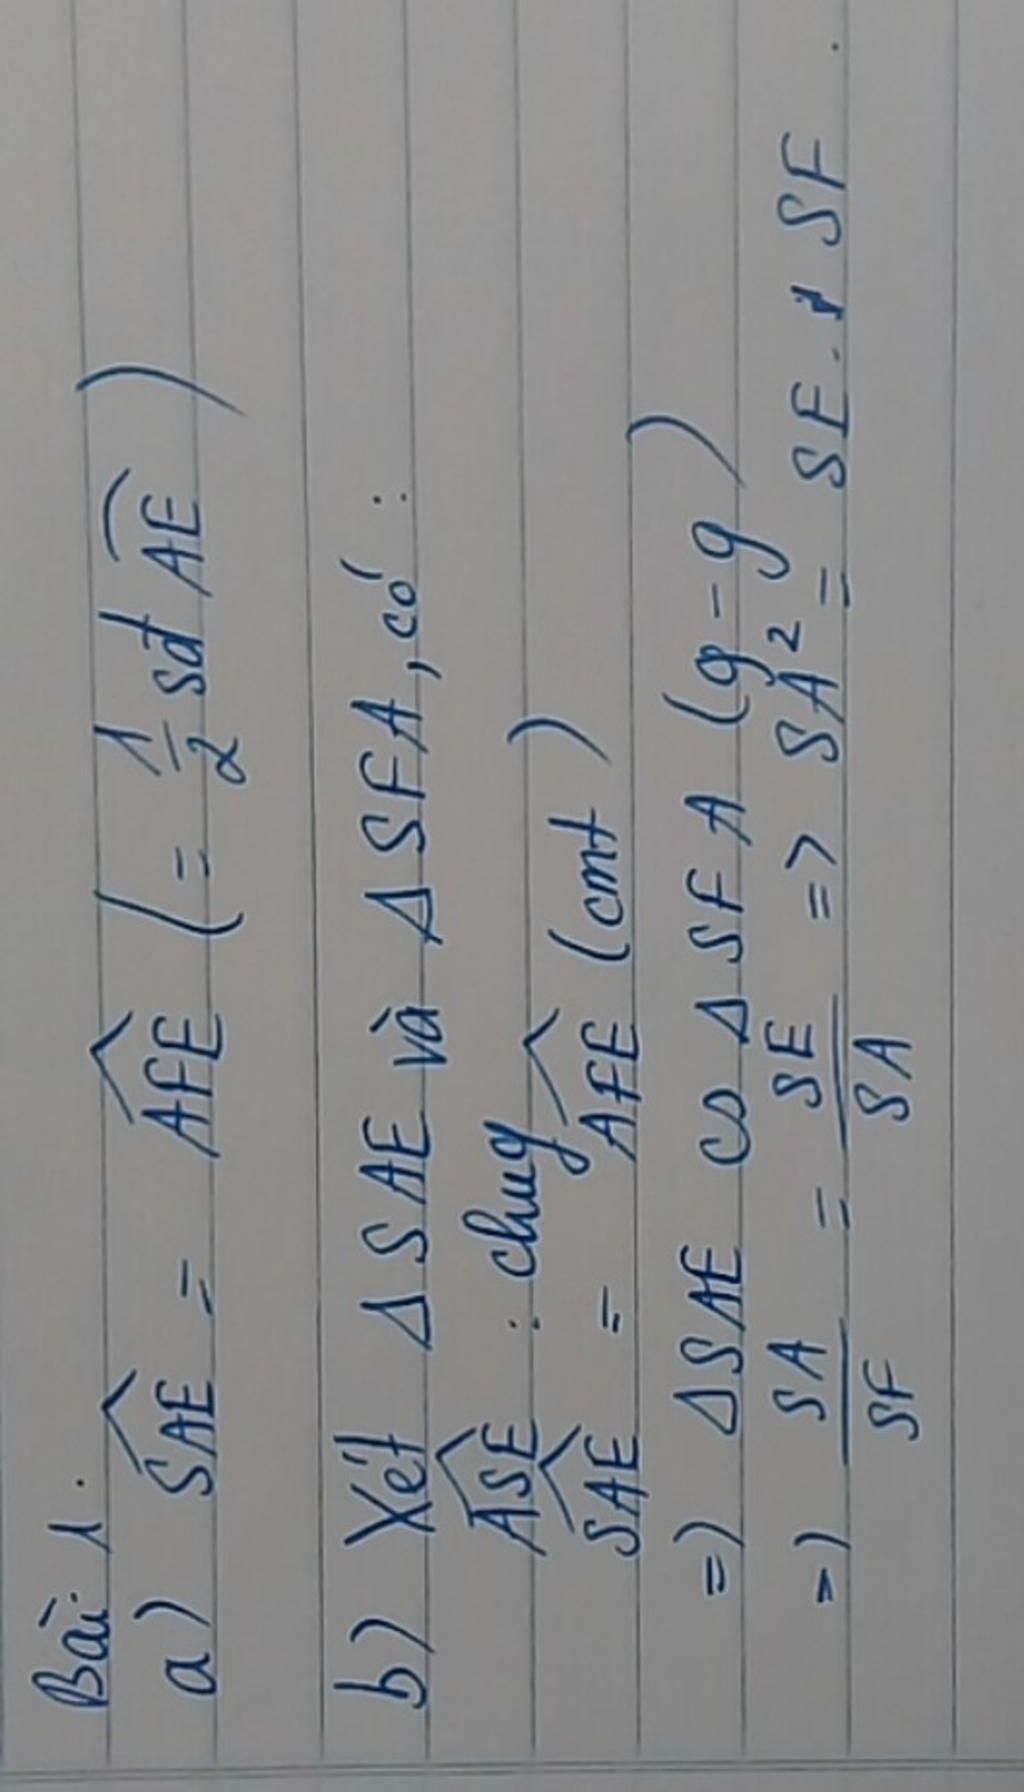 Bài 1.
a) SAE = AFE ( = 1/2 sđ AE )
b) Xét Δ SAE và Δ SFA, có :
ASE : chung
SAE = AFE (cmt)
=) ΔSAE ᔕ Δ SFA (g-g)
=) SA/SF = SE/SA => SA² = SE . SF .